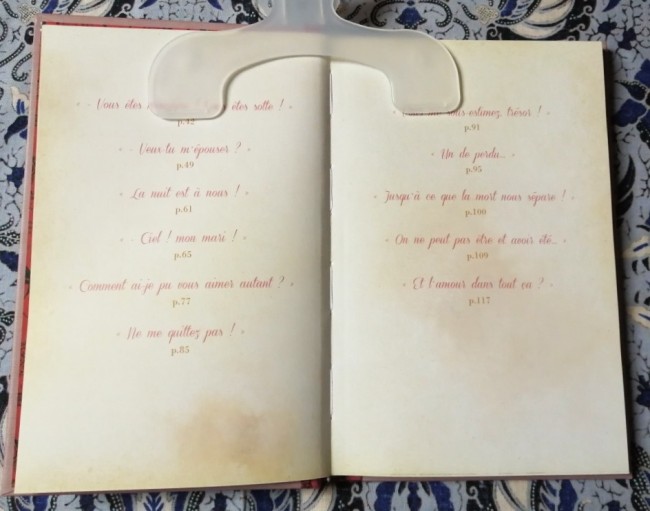 « - Vous êtes êtes sotte ! »
p.42
« - Veux-tu m'épouser ? »
p.49
« La nuit est à nous ! »
p.61
« - Ciel ! mon mari ! »
p.65
« Comment ai-je pu vous aimer autant ? »
p.77
« Ne me quittez pas ! »
p.85
sous-estimez, trésor ! »
p.91
« Un de perdu... »
p.95
« Jusqu'à ce que la mort nous sépare ! »
p.100
« On ne peut pas être et avoir été... »
p.109
« Et l'amour dans tout ça ? »
p.117